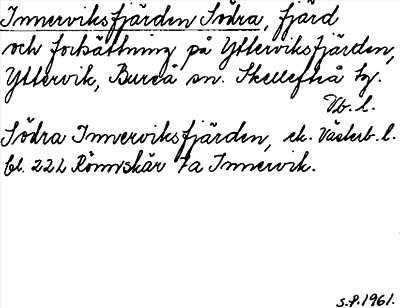 Innerviksfjärden Södra, fjärd
och fortsättning på Ytterviksfjärden,
Yttervik, Bureå sn. Skellefteå tg.
Vb. l.
Södra Innerviksfjärden, ek. Västerb. l.
bl. 22 L Rönnskär ta Innervik.
S.P. 1961.